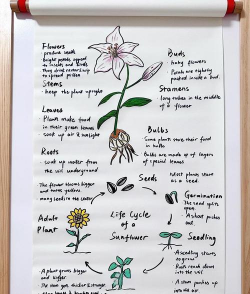 Flowers
produce seeds
bright petals
to insects and birds
to spread pollen
Stems
- keep the plant upright
Leaves
Plants make food
in their green leaves
soak up air & sunlight
Roots
- soak up water from
the soil underground
Buds
- baby flowers
- Petals are tightly
packed inside a bud.
Stamens
- long tubes in the middle
of a flower
Bulbs
Some plants store their food
in bulbs
Bulbs are made up of layers
of special leaves
Seeds
Most plants start
as a seed.
The flower blooms bigger
and turns yellow
Germination
The seed splits
open.
A shoot pokes
out
Adult
Plant
Life Cycle
of a
Sunflower
Seedling
A seedling starts
to grow
Roots reach down
into the soil
A stem pushes up
into the air
A plant grows bigger
and higher
The stem gets thicker & stronger